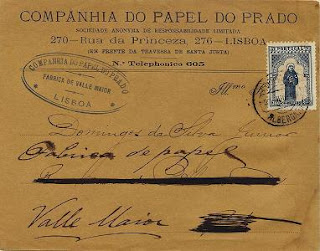 COMPANHIA DO PAPEL DO PRADO
SOCIEDADE ANONYMA DE RESPONSABILIDADE LIMITADA
270–Rua da Princeza, 276–LISBOA
(EM FRENTE DA TRAVESSA DE SANTA JUSTA)
N.º Telephonico 605
COMPANHIA DO PAPEL DO PRADO
FABRICA DE VALLE MAIOR
LISBOA
Illmo
Domingos da Silva Junior
Fabrica de papel
Valle Maior